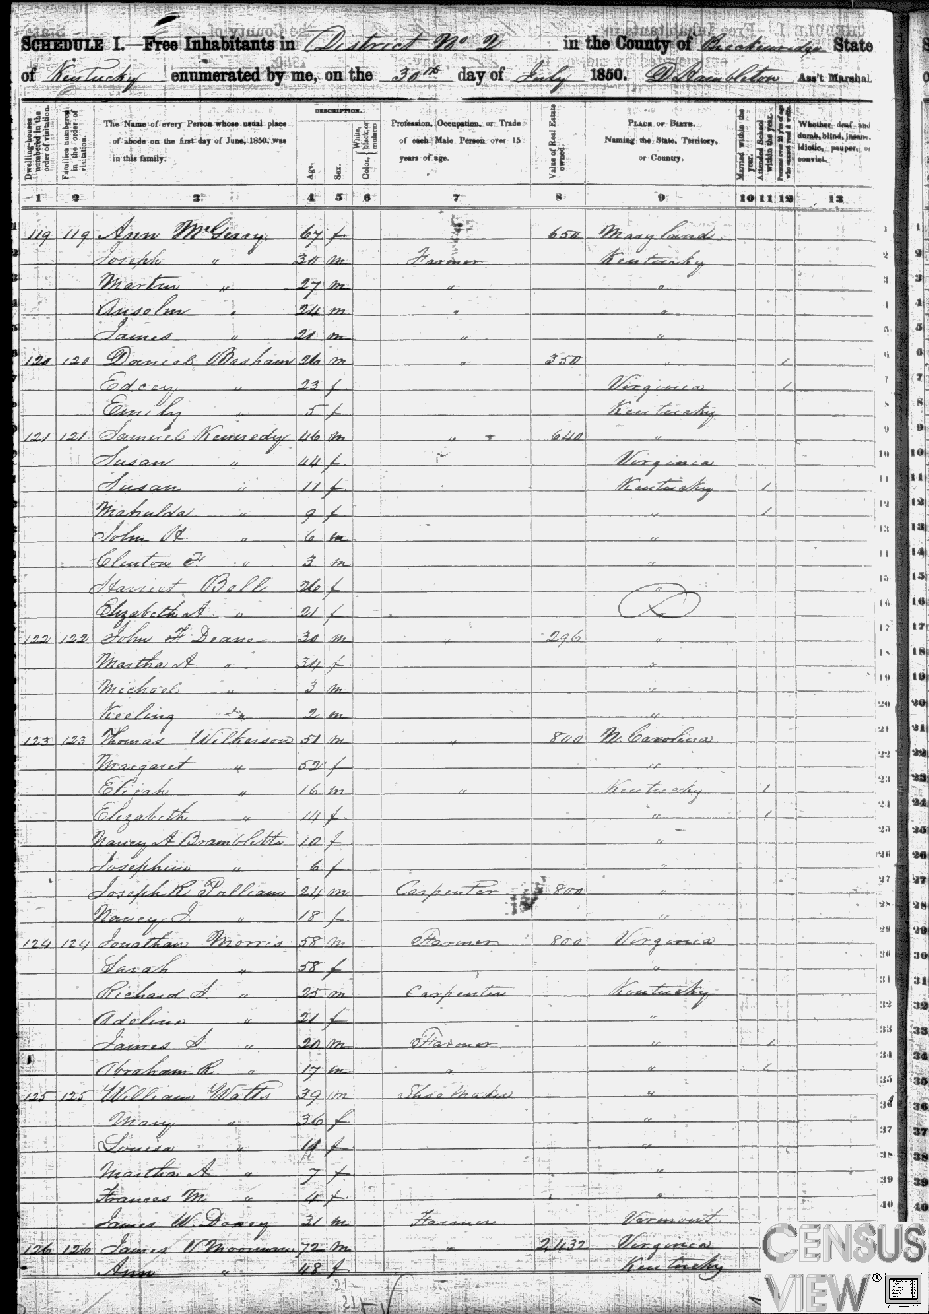 SCHEDULE I.—Free Inhabitants in District No 2 in the County of Breckenridge State
of Kentucky enumerated by me, on the 30th day of July 1850. Ass't Marshal.
Dwelling-houses numbered in the order of visitation.
Families numbered in the order of visitation.
The Name of every Person whose usual place of abode on the first day of June, 1850, was in this family.
DESCRIPTION.
Age.
Sex.
Color, White, black, or mulatto
Profession, Occupation, or Trade of each Male Person over 15 years of age.
Value of Real Estate owned.
PLACE OF BIRTH. Naming the State, Territory, or Country.
Married within the year.
Attended School within the year.
Persons over 20 y'rs of age who cannot read & write.
Whether deaf and dumb, blind, insane, idiotic, pauper, or convict.
1 2 3 4 5 6 7 8 9 10 11 12 13
1 119 119 Ann 67 f 650 Maryland 1
2 Joseph " 30 m Farmer Kentucky 2
3 Martin " 27 m " " 3
4 Anselm " 24 m " " 4
5 James " 20 m " " 5
6 120 120 Daniel Basham 26 m " 350 1 6
7 Edcey " 23 f Virginia 1 7
8 Emily " 5 f Kentucky 8
9 121 121 Samuel Kennedy 46 m " 640 " 9
10 Susan " 44 f Virginia 10
11 Susan " 11 f Kentucky 1 11
12 Matilda " 9 f " 1 12
13 John " 6 m " 13
14 Clinton F " 3 m " 14
15 Harriet Ball 26 f 15
16 Elizabeth A " 21 f 16
17 122 122 John F Deane 30 m " 296 " 17
18 Martha A " 34 f " 18
19 Michael " 3 m " 19
20 Keeling " 2 m " 20
21 123 123 Thomas Wilkerson 51 m " 800 N. Carolina 21
22 Margaret " 52 f " 22
23 Elijah " 16 m " Kentucky 1 23
24 Elizabeth " 14 f " 1 24
25 Nancy A Bramblette 10 f 25
26 Josephine " 6 f " 26
27 Joseph R Pulliam 24 m Carpenter 800 " 27
28 Nancy J " 18 f " 28
29 124 124 Jonathan Morris 58 m Farmer 800 Virginia 29
30 Sarah " 58 f " 30
31 Richard S. " 25 m Carpenter Kentucky 31
32 Adeline " 21 f " 32
33 James S " 20 m Farmer " 1 33
34 Abraham R " 17 m " " 1 34
35 125 125 William Watts 39 m Shoe Maker " 35
36 Mary " 36 f " 36
37 Louisa " f " 37
38 Martha A " 7 f " 38
39 Frances M " 4 f " 39
40 James W 31 m Farmer Vermont 40
126 126 James Moorman 72 m " 2432 Virginia
Ann " 48 f Kentucky
CENSUS
VIEW®